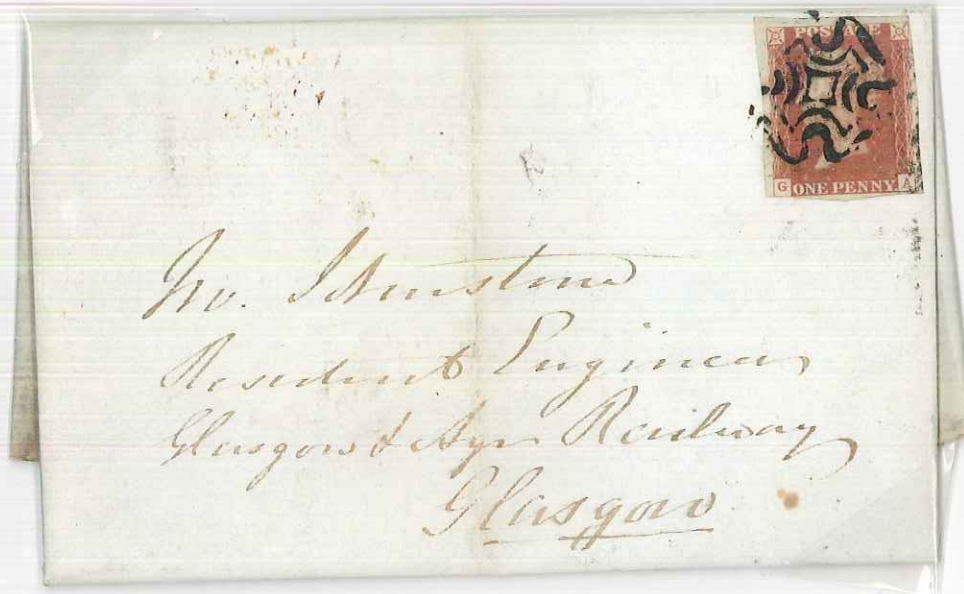 POSTAGE
G ONE PENNY A
Jno. Johnstone
Resident Engineer
Glasgow & Ayr Railway
Glasgow